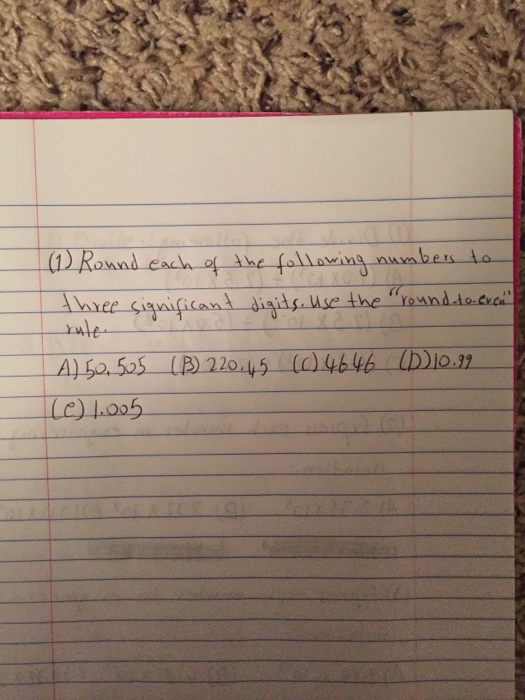 (1) Round each of the following numbers to
three significant digits. Use the "round-to-even"
rule.
A) 50,505 (B) 220.45 (C) 4646 (D) 10.99
(e) 1.005